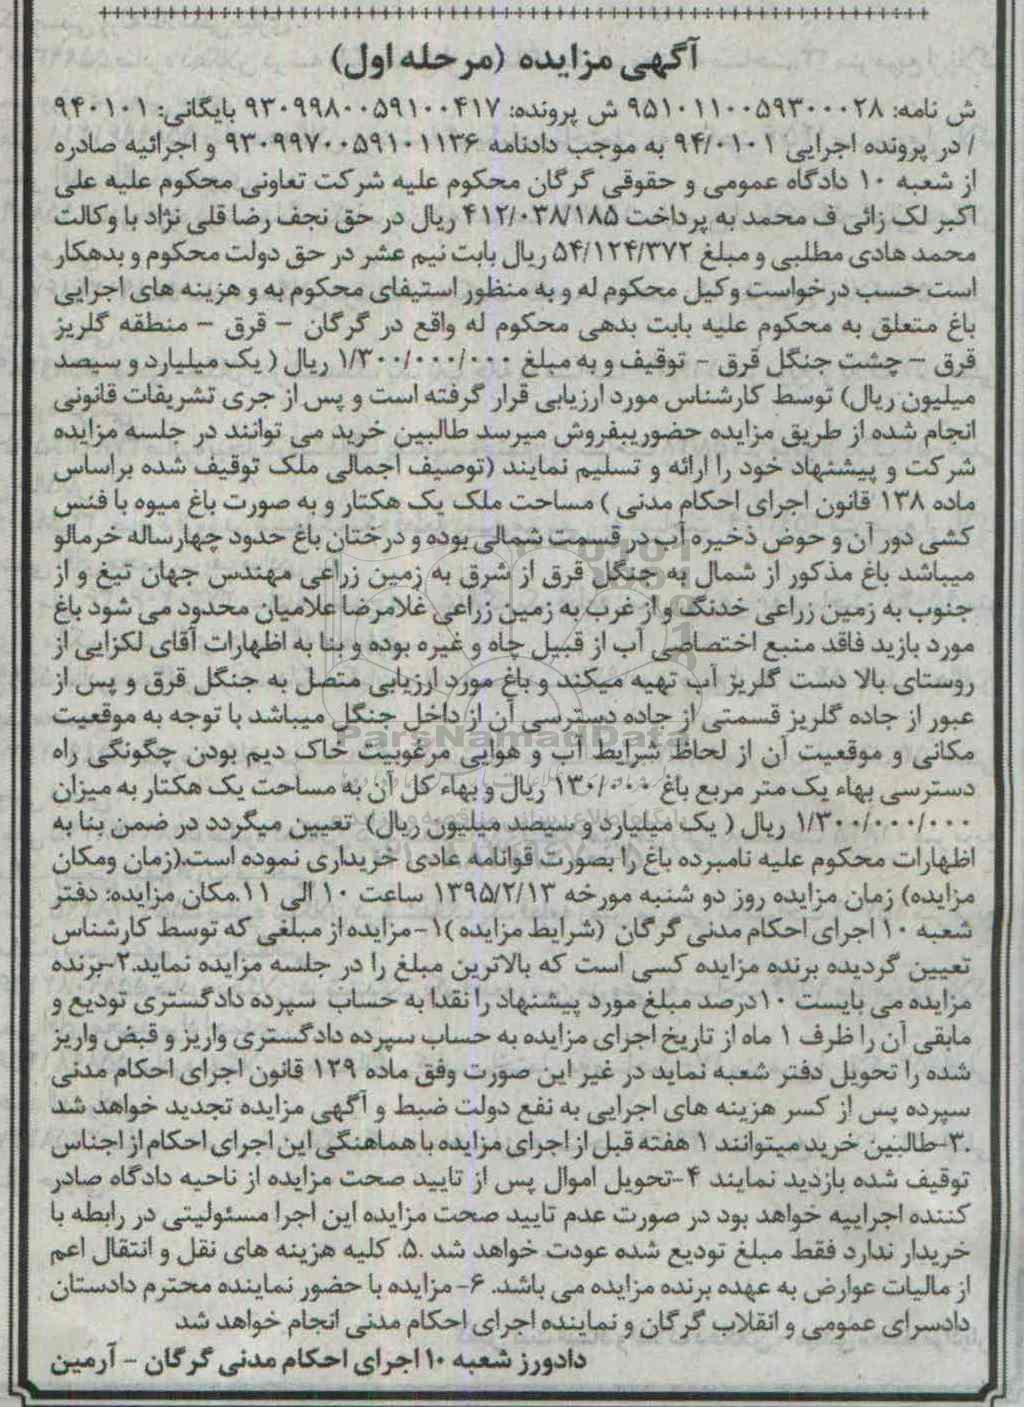 آگهی مزایده (مرحله اول)
ش نامه: ۹۵۱۰۱۱۰۰۵۹۳۰۰۰۲۸ ش پرونده: ۹۳۰۹۹۸۰۰۵۹۱۰۰۴۱۷ بایگانی: ۹۴۰۱۰۱
/ در پرونده اجرایی ۹۴/۰۱۰۱ به موجب دادنامه ۹۳۰۹۹۷۰۰۵۹۱۰۱۱۳۶ و اجرائیه صادره
از شعبه ۱۰ دادگاه عمومی و حقوقی گرگان محکوم علیه شرکت تعاونی محکوم علیه علی
اکبر لک زائی ف محمد به پرداخت ۴۱۲/۰۳۸/۱۸۵ ریال در حق نجف رضا قلی نژاد با وکالت
محمد هادی مطلبی و مبلغ ۵۴/۱۲۴/۳۷۲ ریال بابت نیم عشر در حق دولت محکوم و بدهکار
است حسب درخواست وکیل محکوم له و به منظور استیفای محکوم به و هزینه های اجرایی
باغ متعلق به محکوم علیه بابت بدهی محکوم له واقع در گرگان – قرق – منطقه گلریز
قرق – چشت جنگل قرق – توقیف و به مبلغ ۱/۳۰۰/۰۰۰/۰۰۰ ریال ( یک میلیارد و سیصد
میلیون ریال) توسط کارشناس مورد ارزیابی قرار گرفته است و پس از جری تشریفات قانونی
انجام شده از طریق مزایده حضوریبفروش میرسد طالبین خرید می توانند در جلسه مزایده
شرکت و پیشنهاد خود را ارائه و تسلیم نمایند (توصیف اجمالی ملک توقیف شده براساس
ماده ۱۳۸ قانون اجرای احکام مدنی ) مساحت ملک یک هکتار و به صورت باغ میوه با فنس
کشی دور آن و حوض ذخیره آب در قسمت شمالی بوده و درختان باغ حدود چهارساله خرمالو
میباشد باغ مذکور از شمال به جنگل قرق از شرق به زمین زراعی مهندس جهان تیغ و از
جنوب به زمین زراعی خدنگ و از غرب به زمین زراعی غلامرضا علامیان محدود می شود باغ
مورد بازید فاقد منبع اختصاصی آب از قبیل چاه و غیره بوده و بنا به اظهارات آقای لکزایی از
روستای بالا دست گلریز آب تهیه میکند و باغ مورد ارزیابی متصل به جنگل قرق و پس از
عبور از جاده گلریز قسمتی از جاده دسترسی آن از داخل جنگل میباشد با توجه به موقعیت
ParsNamadData
مکانی و موقعیت آن از لحاظ شرایط آب و هوایی مرغوبیت خاک دیم بودن چگونگی راه
دسترسی بهاء یک متر مربع باغ ۱۳۰/۰۰۰ ریال و بهاء کل آن به مساحت یک هکتار به میزان
۱/۳۰۰/۰۰۰/۰۰۰ ریال ( یک میلیارد و سیصد میلیون ریال) تعیین میگردد در ضمن بنا به
اظهارات محکوم علیه نامبرده باغ را بصورت قوانامه عادی خریداری نموده است.(زمان ومکان
مزایده) زمان مزایده روز دو شنبه مورخه ۱۳۹۵/۲/۱۳ ساعت ۱۰ الی ۱۱.مکان مزایده: دفتر
شعبه ۱۰ اجرای احکام مدنی گرگان (شرایط مزایده )۱-مزایده از مبلغی که توسط کارشناس
تعیین گردیده برنده مزایده کسی است که بالاترین مبلغ را در جلسه مزایده نماید.۲-برنده
مزایده می بایست ۱۰درصد مبلغ مورد پیشنهاد را نقدا به حساب سپرده دادگستری تودیع و
مابقی آن را ظرف ۱ ماه از تاریخ اجرای مزایده به حساب سپرده دادگستری واریز و قبض واریز
شده را تحویل دفتر شعبه نماید در غیر این صورت وفق ماده ۱۲۹ قانون اجرای احکام مدنی
سپرده پس از کسر هزینه های اجرایی به نفع دولت ضبط و آگهی مزایده تجدید خواهد شد
.۳-طالبین خرید میتوانند ۱ هفته قبل از اجرای مزایده با هماهنگی این اجرای احکام از اجناس
توقیف شده بازدید نمایند ۴-تحویل اموال پس از تایید صحت مزایده از ناحیه دادگاه صادر
کننده اجراییه خواهد بود در صورت عدم تایید صحت مزایده این اجرا مسئولیتی در رابطه با
خریدار ندارد فقط مبلغ تودیع شده عودت خواهد شد .۵. کلیه هزینه های نقل و انتقال اعم
از مالیات عوارض به عهده برنده مزایده می باشد. ۶-مزایده با حضور نماینده محترم دادستان
دادسرای عمومی و انقلاب گرگان و نماینده اجرای احکام مدنی انجام خواهد شد
دادورز شعبه ۱۰ اجرای احکام مدنی گرگان – آرمین